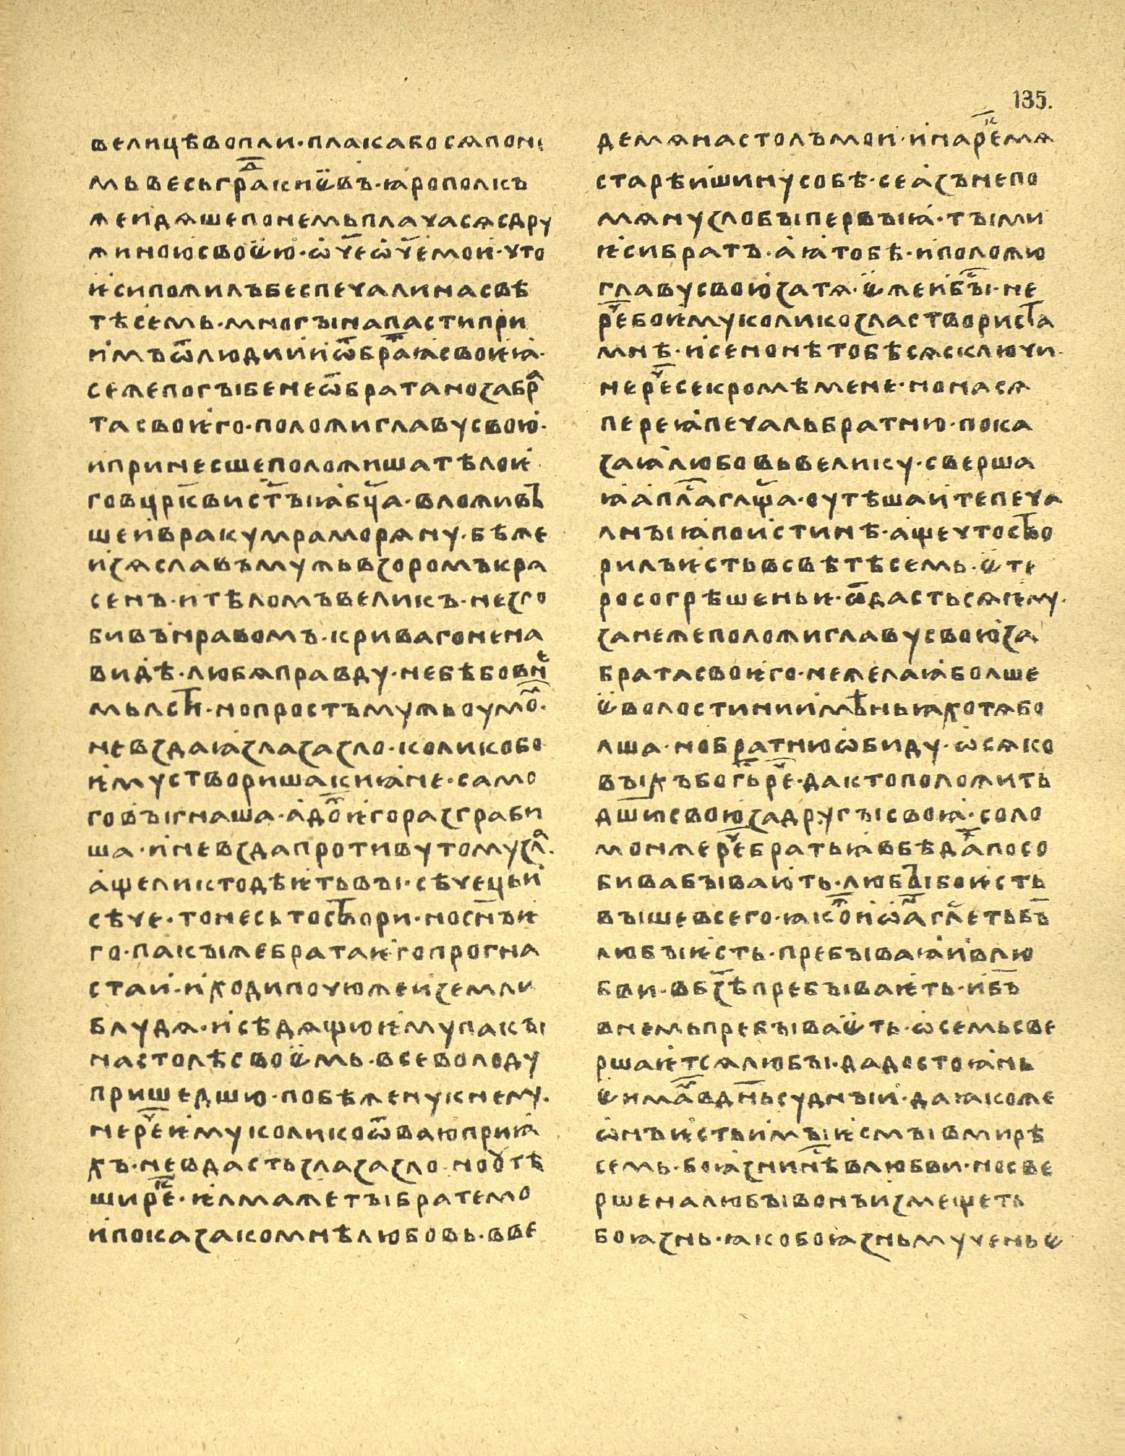 135.
велицѣ вопли · плакабосѧпонꙇ
мьвесьградъкиѥвъ · ꙗрополкъ
жеидѧшепонемьплачасѧсдру
жиноюсвоѥю · ѡч҃еѡч҃емои · что
ѥсипожилъбеспечалинасвѣ
тѣсемь · многꙑнапастипри
имъѿлюдииѿбратьꙗсвоеꙗ ·
сежепогꙑбенеѿбратанозабра
тасвоѥго · положиглавусвою ·
ипринесшеположишатѣлоѥ
говцр҃квист҃ꙑꙗбц҃а · вложивъ
шеивракумраморѧну · бѣже
изѧславъмужьвзоромъкра
сенъ · итѣломъвеликъ · незло
бивънравомъ · кривагонена
видѣ · любѧправду · небѣбовне
мьлсти · нопростъмужьоумом ·
невздаꙗзлазазло · коликобо
ѥмустворишакиꙗне · само
говꙑгнаша · адомъѥгоразграби
ша · иневздапротивутомузла ·
ащеликтодѣѥтьвꙑ · сѣчецьи
сѣче · тонесьтоствори · носн҃ъѥ
го · пакꙑжебратаѥгопрогна
стаи · иходипочюжеиземли
блудѧ · исѣдѧщюѥмупакꙑ
настолѣсвоѥмь · всеволоду
пришедшю · побѣженукнему ·
нереч҃ѥмуколикоѿваюприꙗ
хъ · невдастьзлазазло · ноутѣ
шире҃к · ѥлмажетꙑбратемо
ипоказакомнѣлюбовь · вве
демѧнастолъмои · инаре҃кмѧ
старѣишинусобѣ · сеазънепо
мѧнузлобꙑпервꙑꙗ · тꙑми
ѥсибратъ · аꙗтобѣ · иположю
главусвоюзатѧ · ѥжеибꙑс҃ · не
реч҃боѥмуколикозластвориста
мнѣ · исенонѣтобѣсѧсключи ·
нереч҃секромѣмене · нонасѧ
переꙗпечальбратню · пока
заꙗлюбовьвелику · сверша
ꙗапл҃аглщ҃а · оутѣшаитепеча
лнꙑꙗпоистинѣ · ащечтоство
рилъѥстьвсвѣтѣсемь · ѥте
росогрѣшеньѥ · ѿдастьсѧѥму ·
занежеположиглавусвоюза
братасвоѥго · нежелаꙗболше
ѥволостиниимѣньꙗхотѧбо
лша · нобратнюѡбиду · ѡсѧко
вꙑхъбогь҃ре҃ч · дактоположить
дш҃исвоюзадругꙑсвоꙗ · соло
монжереч҃братьꙗвбѣдахъпосо
бивабꙑвають · любꙑбоѥсть
вꙑшевсего · ꙗкожеиѡанъгл҃етьб҃ъ
любꙑѥсть · пребꙑваꙗивлю
бви · вбз҃ѣпребꙑваѥть · иб҃ъ
внемьпребꙑваѥть · ѡсемьсве
ршаѥтсѧлюбꙑ · дадостоꙗнь
ѥимамъвдн҃ьсуднꙑи · даꙗкоже
ѡнъѥстьимꙑѥсмꙑвмирѣ
семь · боꙗзнинѣ҃влюбви · носве
ршеналюбꙑвонъизмещеть
боꙗзнь · ꙗкобоꙗзньмученьѥ